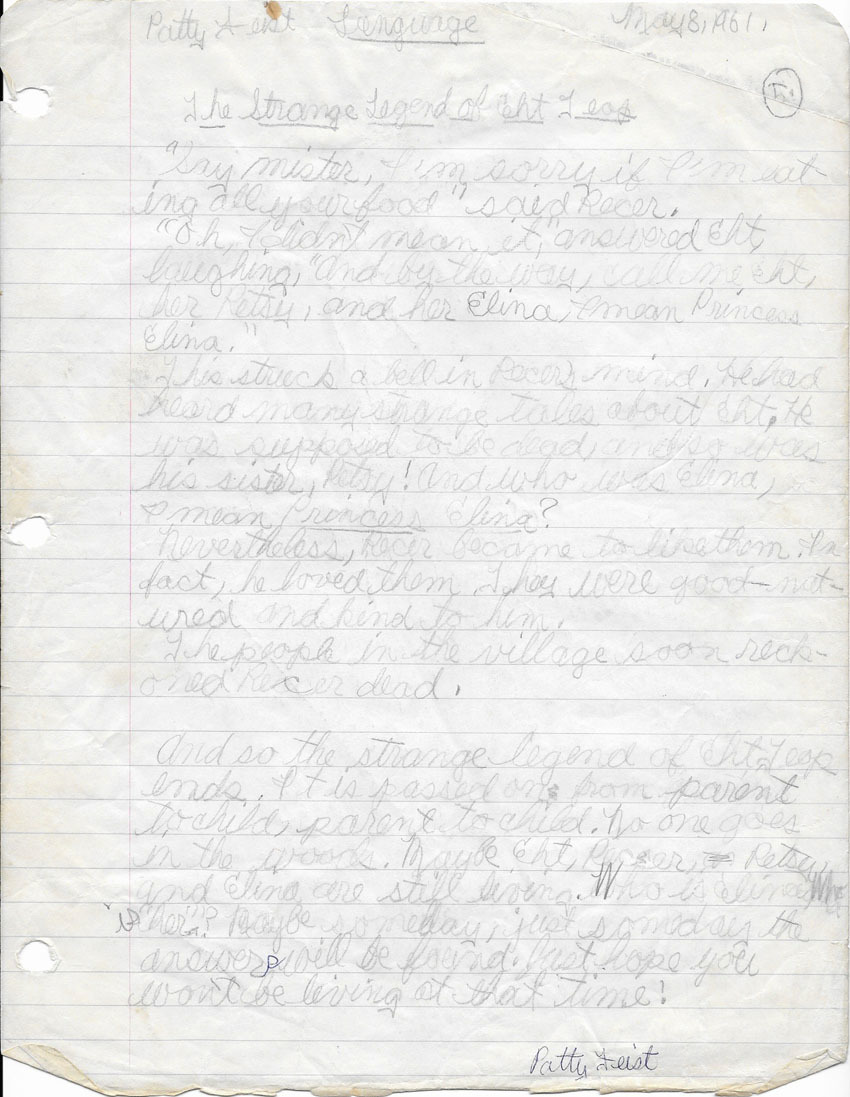 Patty Feist Language May 8, 1961.
The Strange Legend of Eht Leop
"Say mister, I'm sorry if I'm eat-
ing all your food" said Recer.
"Oh, I didn't mean it," answered Eht,
laughing, "And by the way, call me Eht,
her Retsy, and her Elina, I mean Princess
Elina."
This struck a bell in Recer's mind. He had
heard many strange tales about Eht. He
was supposed to be dead, and so was
his sister, Retsy! And who was Elina,
I mean Princess Elina?
Nevertheless, Recer became to like them. In
fact, he loved them. They were good-nat-
ured and kind to him.
The people in the village soon reck-
oned Recer dead.
And so the strange legend of Eht Leop
ends. It is passed on from parent
to child, parent to child. No one goes
in the woods. Maybe Eht, Recer, Retsy,
and Elina are still living. Who is Elina? Who
is "her"? Maybe someday, just someday the
answers will be found. Just hope you
won't be living at that time!
Patty Feist